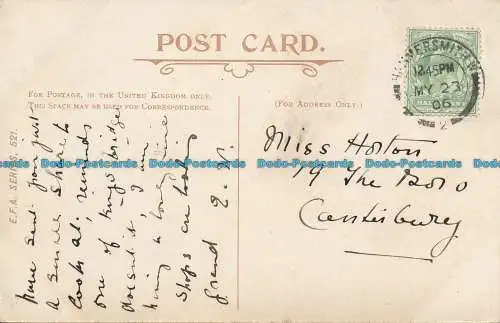 POST CARD.
FOR POSTAGE, IN THE UNITED KINGDOM ONLY,
THIS SPACE MAY BE USED FOR CORRESPONDENCE.
(FOR ADDRESS ONLY.)
E.F.A. SERIES. 521.
have sent you just
a small sketch
looks at, reminds
one of Kingsbridge
doesn't it I am
having a lovely time
Shops are looking
grand
HAMMERSMITH
12.45PM
MY 23
06
Miss Horton
19 The
Canterbury
Dodo-Postcards Dodo-Postcards Dodo-Postcards